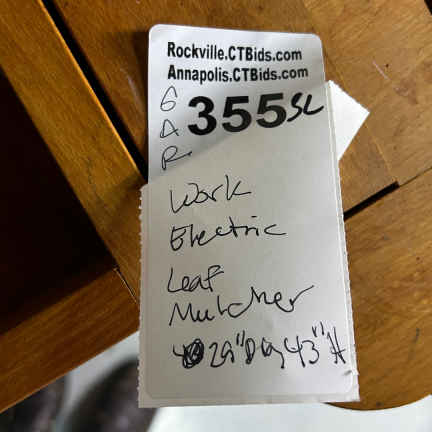 Rockville.CTBids.com
Annapolis.CTBids.com
GAR
355SL
Work
Electric
Leaf
Mulcher
29"D by 43"H